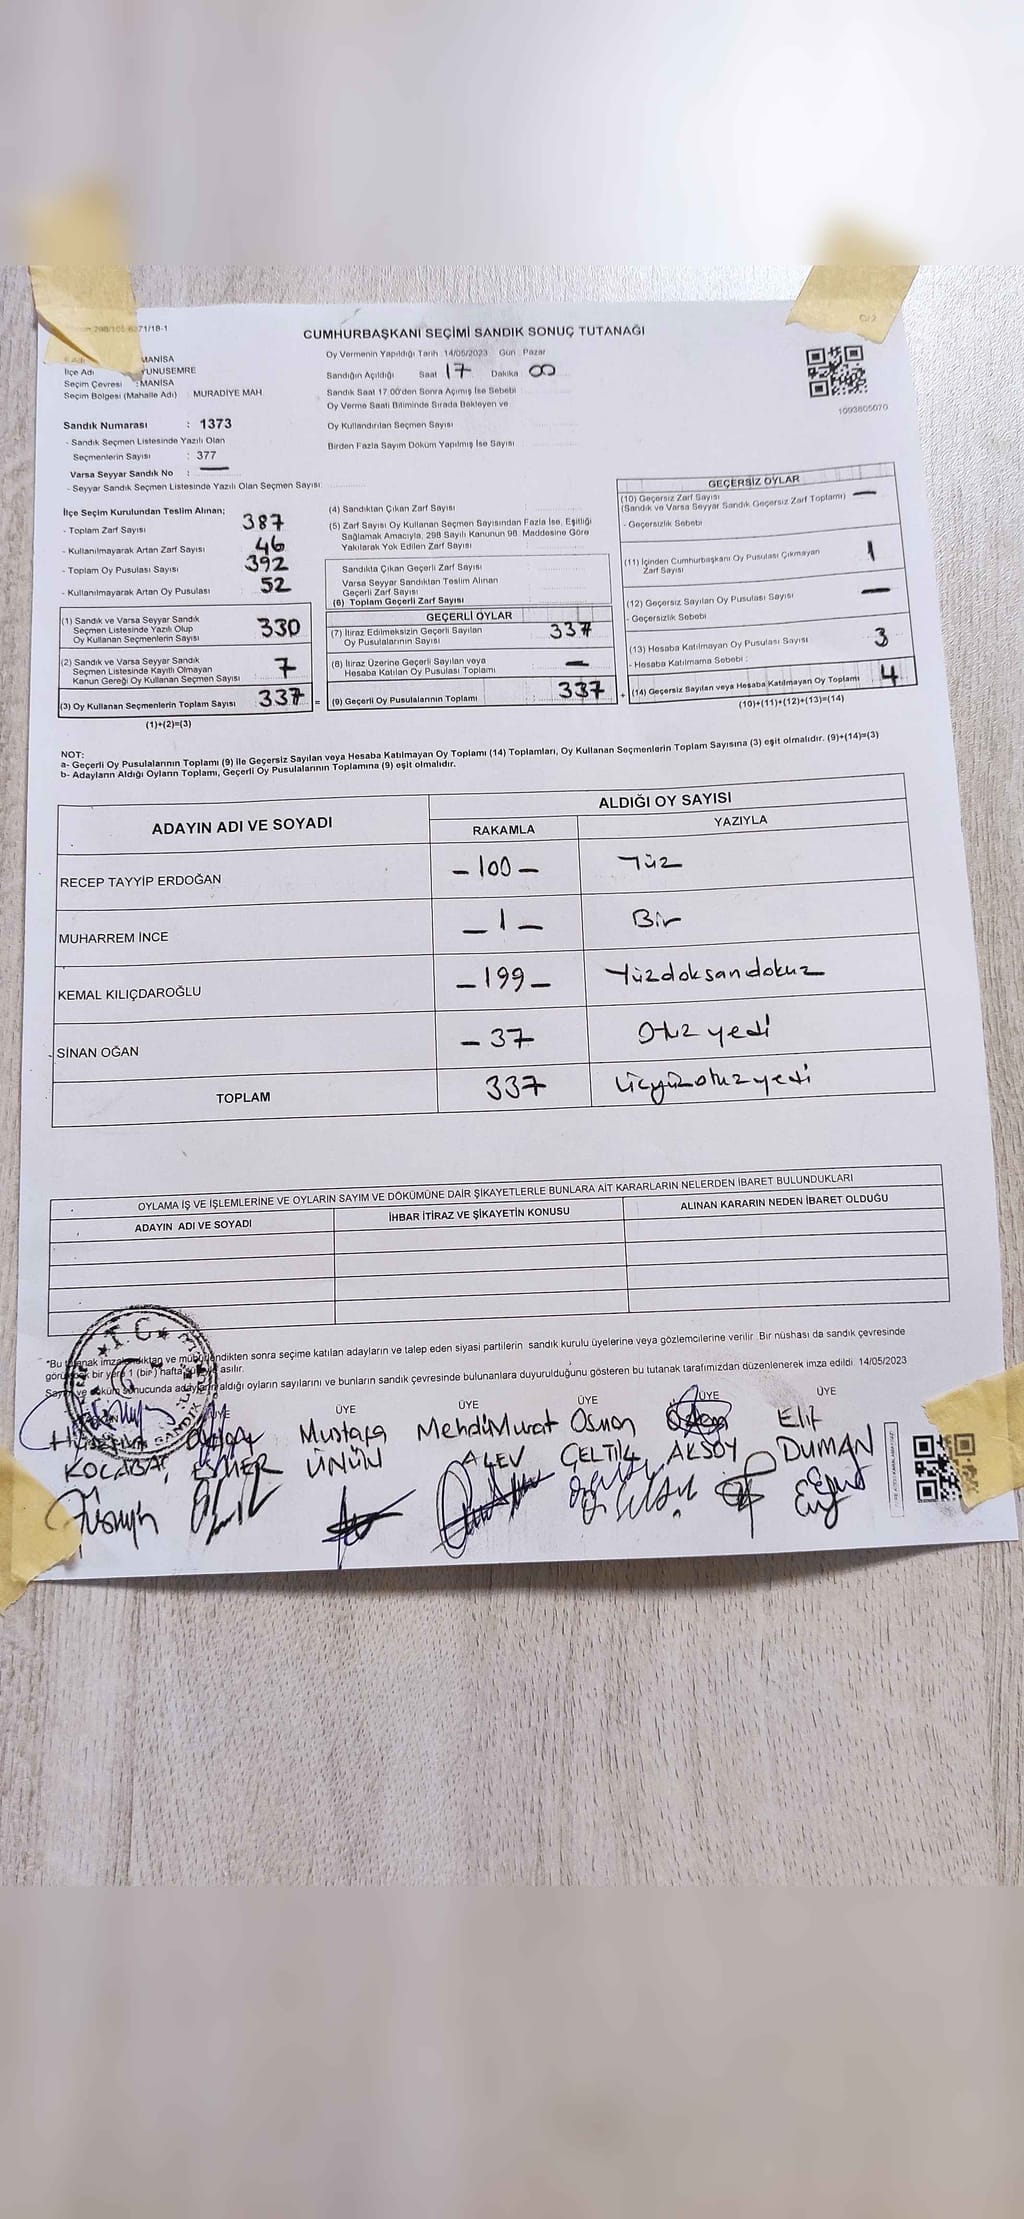 298/105-6271/18-1
C/2
CUMHURBAŞKANI SEÇİMİ SANDIK SONUÇ TUTANAĞI
MANİSA
İlçe Adı : YUNUSEMRE
Seçim Çevresi : MANİSA
Seçim Bölgesi (Mahalle Adı) : MURADİYE MAH
Oy Vermenin Yapıldığı Tarih 14/05/2023 Gün Pazar
Sandığın Açıldığı Saat 17 Dakika 00
Sandık Saat 17.00'den Sonra Açımış İse Sebebi
Oy Verme Saati Bitiminde Sırada Bekleyen ve
Oy Kullandırılan Seçmen Sayısı
Birden Fazla Sayım Döküm Yapılmış İse Sayısı
1093605070
Sandık Numarası : 1373
- Sandık Seçmen Listesinde Yazılı Olan
Seçmenlerin Sayısı : 377
Varsa Seyyar Sandık No : —
- Seyyar Sandık Seçmen Listesinde Yazılı Olan Seçmen Sayısı:
İlçe Seçim Kurulundan Teslim Alınan;
- Toplam Zarf Sayısı 387
- Kullanılmayarak Artan Zarf Sayısı 46
- Toplam Oy Pusulası Sayısı 392
- Kullanılmayarak Artan Oy Pusulası 52
(1) Sandık ve Varsa Seyyar Sandık
Seçmen Listesinde Yazılı Olup
Oy Kullanan Seçmenlerin Sayısı 330
(2) Sandık ve Varsa Seyyar Sandık
Seçmen Listesinde Kayıtlı Olmayan
Kanun Gereği Oy Kullanan Seçmen Sayısı 7
(3) Oy Kullanan Seçmenlerin Toplam Sayısı 337
(1)+(2)=(3)
(4) Sandıktan Çıkan Zarf Sayısı
(5) Zarf Sayısı Oy Kullanan Seçmen Sayısından Fazla İse, Eşitliği
Sağlamak Amacıyla, 298 Sayılı Kanunun 98. Maddesine Göre
Yakılarak Yok Edilen Zarf Sayısı
Sandıkta Çıkan Geçerli Zarf Sayısı
Varsa Seyyar Sandıktan Teslim Alınan
Geçerli Zarf Sayısı
(6) Toplam Geçerli Zarf Sayısı
GEÇERLİ OYLAR
(7) İtiraz Edilmeksizin Geçerli Sayılan
Oy Pusulalarının Sayısı 337
(8) İtiraz Üzerine Geçerli Sayılan veya
Hesaba Katılan Oy Pusulası Toplamı —
(9) Geçerli Oy Pusulalarının Toplamı : 337
GEÇERSİZ OYLAR
(10) Geçersiz Zarf Sayısı
(Sandık ve Varsa Seyyar Sandık Geçersiz Zarf Toplamı) —
- Geçersizlik Sebebi
(11) İçinden Cumhurbaşkanı Oy Pusulası Çıkmayan
Zarf Sayısı 1
(12) Geçersiz Sayılan Oy Pusulası Sayısı —
- Geçersizlik Sebebi
(13) Hesaba Katılmayan Oy Pusulası Sayısı 3
- Hesaba Katılmama Sebebi :
(14) Geçersiz Sayılan veya Hesaba Katılmayan Oy Toplamı 4
(10)+(11)+(12)+(13)=(14)
NOT:
a- Geçerli Oy Pusulalarının Toplamı (9) ile Geçersiz Sayılan veya Hesaba Katılmayan Oy Toplamı (14) Toplamları, Oy Kullanan Seçmenlerin Toplam Sayısına (3) eşit olmalıdır. (9)+(14)=(3)
b- Adayların Aldığı Oyların Toplamı, Geçerli Oy Pusulalarının Toplamına (9) eşit olmalıdır.
ADAYIN ADI VE SOYADI
ALDIĞI OY SAYISI
RAKAMLA YAZIYLA
RECEP TAYYİP ERDOĞAN -100- Yüz
MUHARREM İNCE -1- Bir
KEMAL KILIÇDAROĞLU -199- Yüzdoksandokuz
SİNAN OĞAN -37 Otuz yedi
TOPLAM 337 Üçyüzotuzyedi
OYLAMA İŞ VE İŞLEMLERİNE VE OYLARIN SAYIM VE DÖKÜMÜNE DAİR ŞİKAYETLERLE BUNLARA AİT KARARLARIN NELERDEN İBARET BULUNDUKLARI
ADAYIN ADI VE SOYADI İHBAR İTİRAZ VE ŞİKAYETİN KONUSU ALINAN KARARIN NEDEN İBARET OLDUĞU
T.C.
SANDIK
*Bu tutanak imzalandıktan ve mühürlendikten sonra seçime katılan adayların ve talep eden siyasi partilerin sandık kurulu üyelerine veya gözlemcilerine verilir. Bir nüshası da sandık çevresinde
görülecek bir yere 1 (bir) hafta süreyle asılır.
Sayım ve döküm sonucunda adayların aldığı oyların sayılarını ve bunların sandık çevresinde bulunanlara duyurulduğunu gösteren bu tutanak tarafımızdan düzenlenerek imza edildi 14/05/2023
ÜYE ÜYE ÜYE ÜYE ÜYE ÜYE
Mustafa Mehdi Murat Osman Elif
KOCABAŞ ESMER ÜNÜN ALEV ÇELTİK AKSOY DUMAN